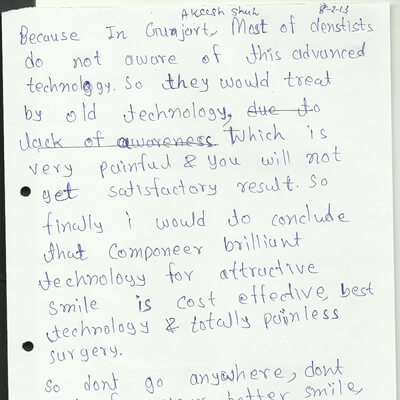 Akcesh Shah 8-2-13
Because In Gunjart, Most of denstists
do not aware of this advanced
technology. So they would treat
by old technology, due to
lack of awareness Which is
very painful & you will not
get satisfactory result. So
finally i would to conclude
that Componeer brilliant
technology for attractive
smile is cost effective, best
technology & totally painless
surgery.
So dont go anywhere, dont
better smile,